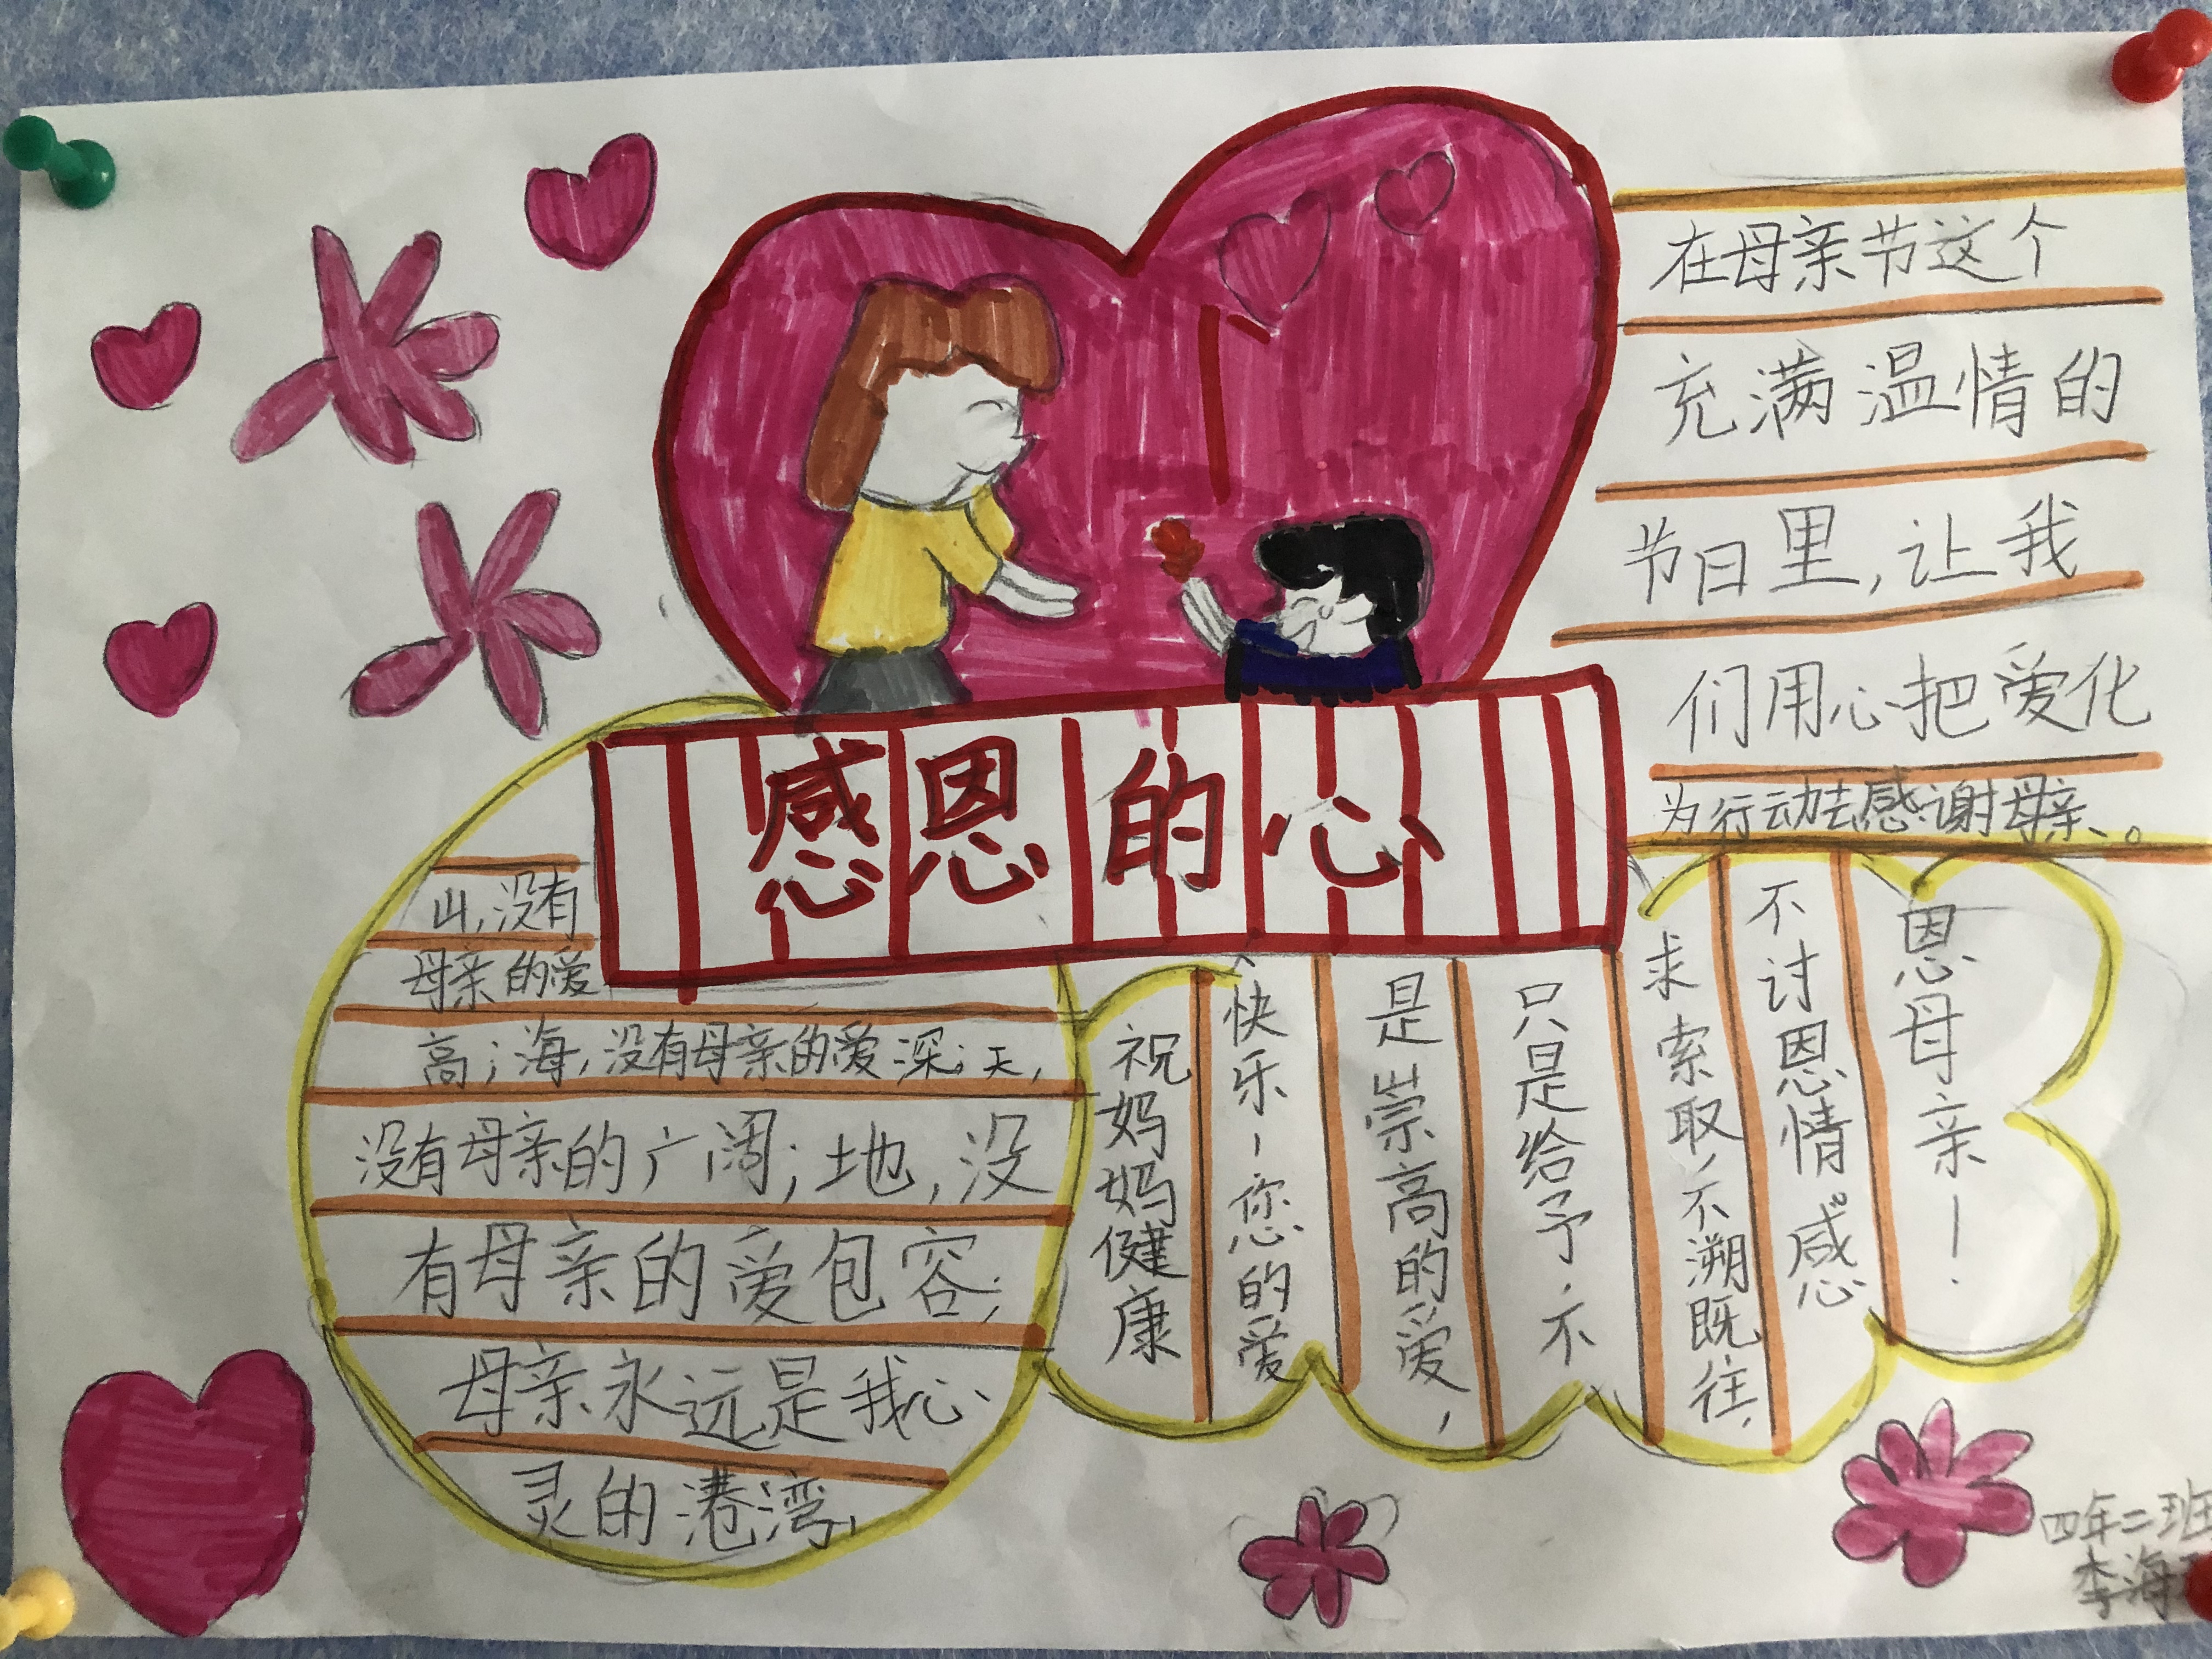 感恩的心
在母亲节这个
充满温情的
节日里,让我
们用心把爱化
为行动去感谢母亲、。
山,没有
母亲的爱
高;海,没有母亲的爱深;天,
没有母亲的广阔;地,没
有母亲的爱包容;
母亲永远是我心
灵的港湾,
祝妈妈健康
快乐!您的爱
是崇高的爱,
只是给予,不
求索取,不溯既往,
不讨恩情。感
恩母亲!
四年二班
李海